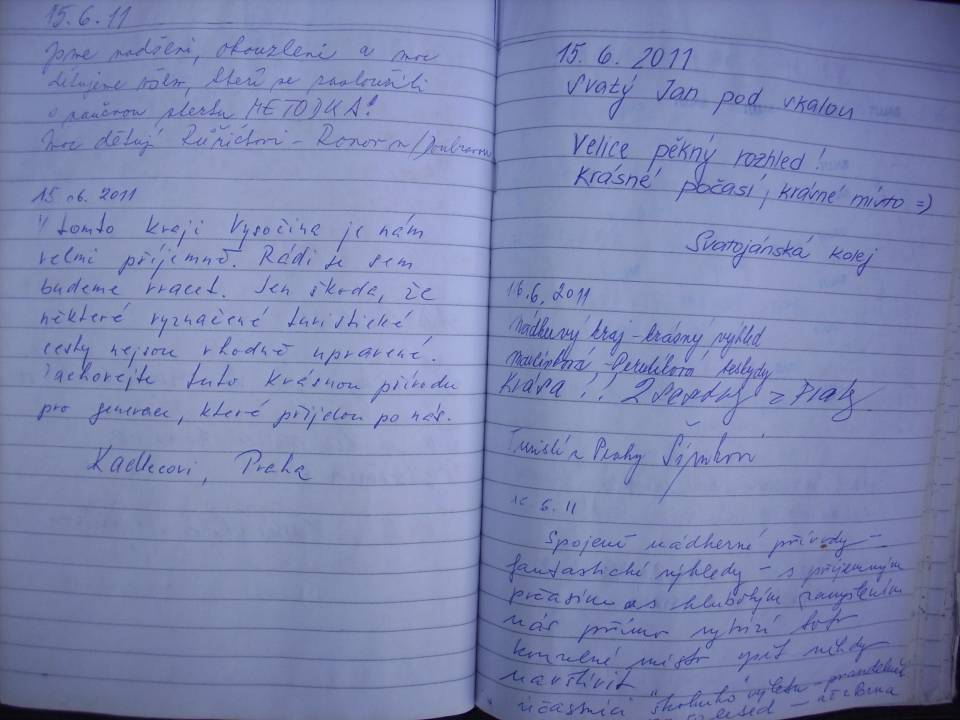 15.6.11
Jsme nadšeni, okouzleni a moc
děkujeme všem, kteří se zasloužili
o naučnou stezku METODKA!
Moc děkují Růžičkovi - Ronov n/Doubravou
15.06.2011
V tomto kraji Vysočina je nám
velmi příjemně. Rádi se sem
budeme vracet. Jen škoda, že
některé vyznačené turistické
cesty nejsou vhodně upravené.
Zachovejte tuto krásnou přírodu
pro generace, které přijdou po nás.
Kadlecovi, Praha
15. 6. 2011
Svatý Jan pod skalou
Velice pěkný rozhled!
Krásné počasí, krásné místo =)
Svatojánská kolej
16.6. 2011
nádherný kraj - krásný výhled
Krása!! 2 sestry z Prahy
Turisté z Prahy Šípkovi
16 6. 11
Spojení nádherné přírody -
fantastické výhledy - s příjemným
počasím a s hlubokým zamyšlením
nás přímo vybízí toto
kouzelné místo opět někdy
navštívit
účastníci "školního" výletu -
- až z Brna